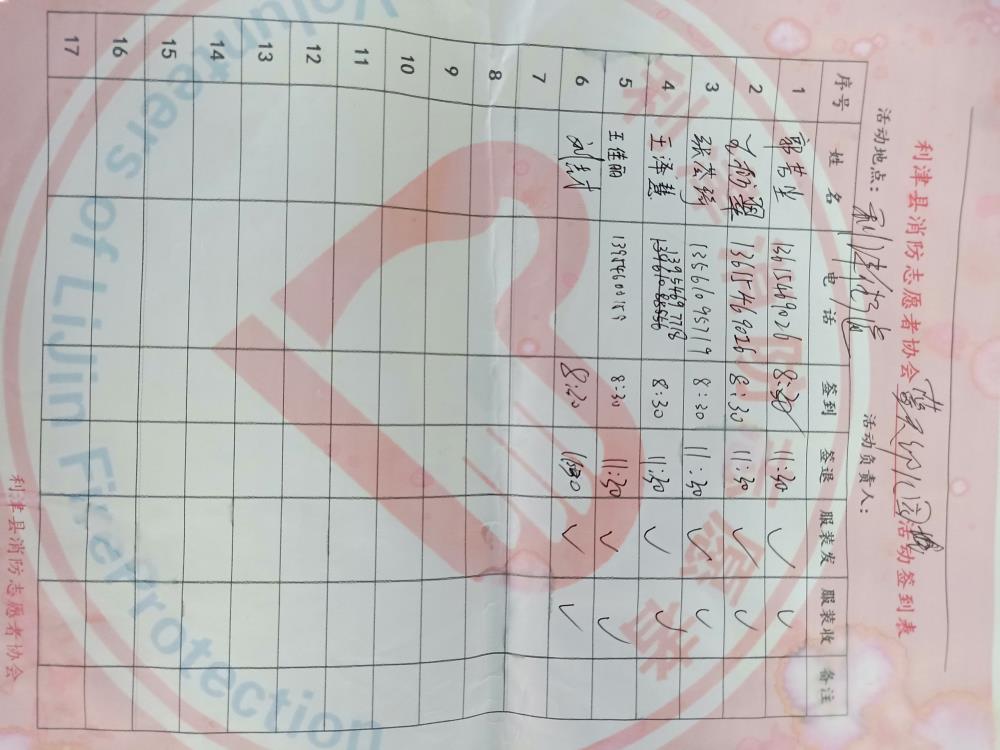 利津县消防志愿者协会 活动签到表
活动地点：利津 活动负责人：
序号 姓名 电话 签到 签退 服装发 服装收 备注
1 13615469026 8:30 11:30 ✓ ✓
2 13615469026 8:30 11:30 ✓ ✓
3 13561095719 8:30 11:30 ✓ ✓
4 王泽慧 13954697778 8:30 11:30 ✓ ✓
5 王佳丽 13954600159 8:30 11:30 ✓ ✓
6 8:30 ✓ ✓
7
8
9
10
11
12
13
14
15
16
17
利津县消防志愿者协会
Volunteers of LiJin Fire Protection